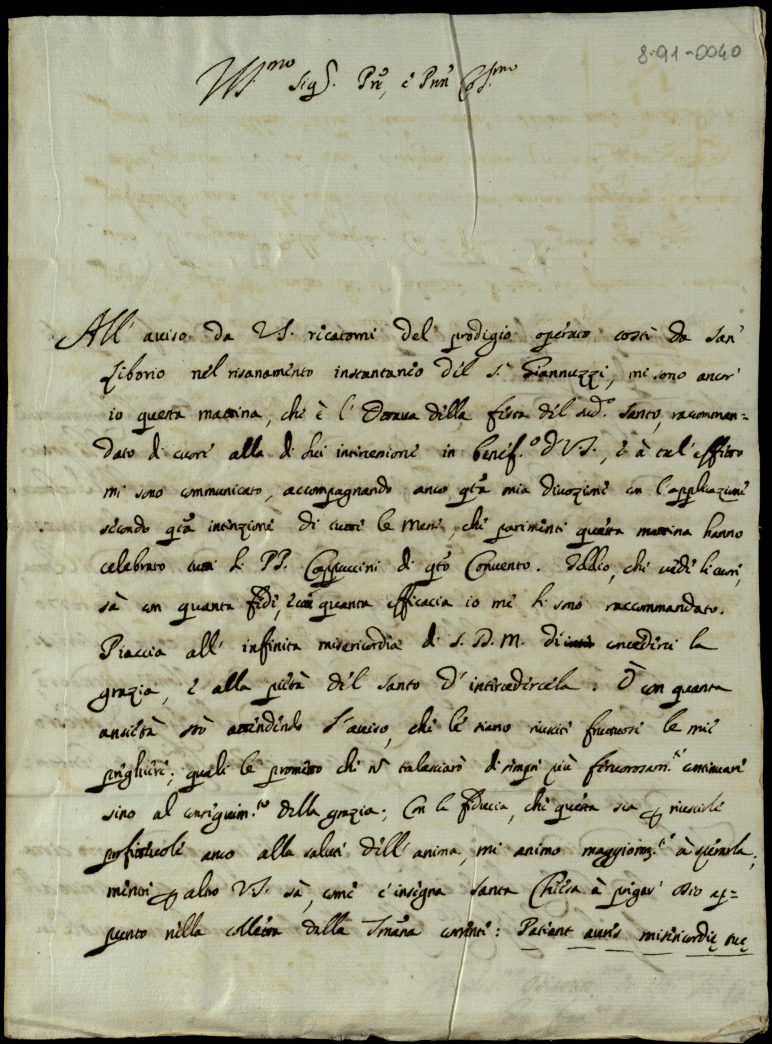 8-91-0040
Ill.mo Sig.r Prē, e Prīn
All' aviso da VS. ricatomi del prodigio operato costì da San
Liborio nel risanamento instantaneo del S.r Giannuzzi, mi sono ancor
io questa mattina, che è l' Ottava della festa del sud.o Santo, raccoman=
dato di cuore alla di lui intercessione in benef.o di VS., e à tal' effetto
mi sono communicato, accompagnando anco q̄ta mia divozione con l'applicazione
secondo q̄ta intenzione di tutte le Messe, che parimenti questa mattina hanno
celebrato tutti li PP. Cappuccini di q̄to Convento. Iddio, che vede li cuori,
sà con quanta fede, e con quanta efficacia io me li sono raccommandato.
Piaccia all' infinita misericordia di S. D. M. di concederci la
grazia, e alla pietà del Santo d' intercedercela: O con quanta
ansietà stò attendendo l'aviso, che le siano riusciti fruttuosi le mie
preghiere; quali le prometto che nō tralasciarò di sempre più fervorosam.te continuare
sino al conseguim.to della grazia; Con la fiducia, che questa sia p riuscirle
profittevole anco alla salute dell' anima, mi animo maggiorm.te à sperarla,
mentre p altro VS. sà, come c'insegna Santa Chiesa à pregar' Dio ap=
punto nella colletta della Smāna corrente: Pateant aures misericordię tuę